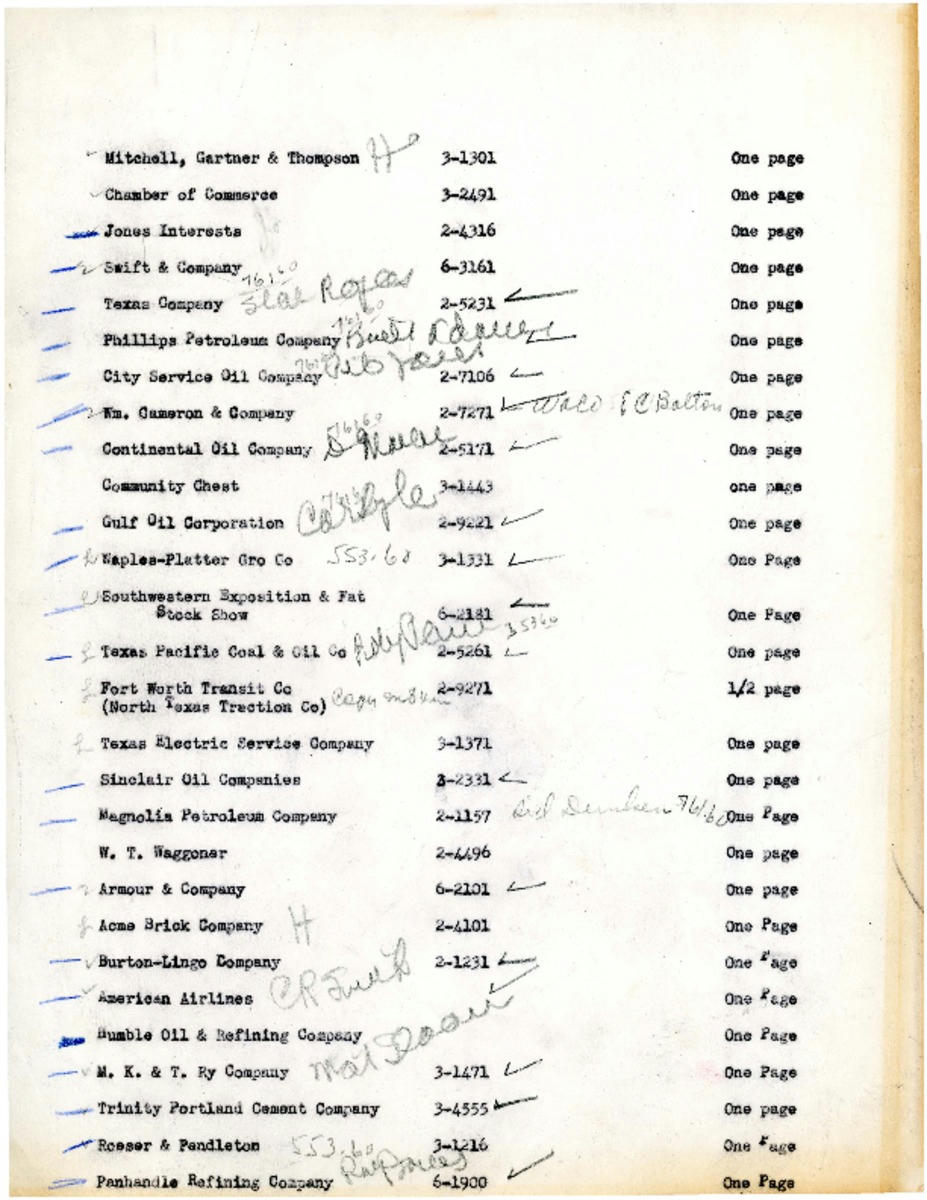 Mitchell, Gartner & Thompson H 3-1301 One page
Chamber of Commerce 3-2491 One page
Jones Interests 2-4316 One page
Swift & Company 6-3161 One page
Texas Company 2-5231 One page
Phillips Petroleum Company One page
City Service Oil Company 2-7106 One page
Wm. Cameron & Company 2-7271 Waco Bolton One page
Continental Oil Company 2-5171 One page
Community Chest 3-1443 one page
Gulf Oil Corporation 2-9221 One page
Waples-Platter Gro Co 553.60 3-1331 One Page
Southwestern Exposition & Fat
Stock Show 6-2181 One Page
Texas Pacific Coal & Oil Co 2-5261 One page
Fort Worth Transit Co 2-9271 1/2 page
(North Texas Traction Co)
Texas Electric Service Company 3-1371 One page
Sinclair Oil Companies 3-2331 One page
Magnolia Petroleum Company 2-1157 One Page
W. T. Waggoner 2-4496 One page
Armour & Company 6-2101 One page
Acme Brick Company H 2-4101 One Page
Burton-Lingo Company 2-1231 One Page
American Airlines C R Smith One Page
Humble Oil & Refining Company One Page
M. K. & T. Ry Company 3-1471 One Page
Trinity Portland Cement Company 3-4555 One page
Roeser & Pendleton 553.60 3-1216 One Page
Panhandle Refining Company 6-1900 One Page